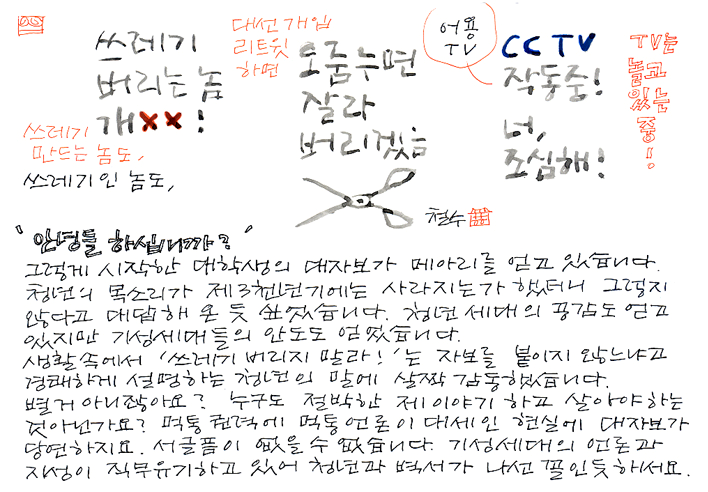 쓰레기
버리는 놈
개××!
쓰레기
만드는 놈도,
쓰레기인 놈도,
대선개입
리트윗
하면
오줌누면
잘라
버리겠음
어용
TV
CCTV
작동중!
너,
조심해!
TV는
놀고
있는
중!
철수
'안녕들 하십니까?'
그렇게 시작한 대학생의 대자보가 메아리를 얻고 있습니다.
청년의 목소리가 제3천년기에는 사라지는가 했더니 그렇지
않다고 대답해 온 듯 싶었습니다. 청년 세대의 공감도 얻고
있지만 기성세대들의 안도도 얻었습니다.
생활속에서 '쓰레기 버리지 말라!'는 자보를 붙이지 않느냐고
경쾌하게 설명하는 청년의 말에 살짝 감동했습니다.
별거 아니잖아요? 누구도 절박한 제 이야기 하고 살아야 하는
것아닌가요? 먹통권력에 먹통언론이 대세인 현실에 대자보가
당연하지요. 서글픔이 없을 수 없습니다. 기성세대의 언론과
지성이 직무유기하고 있어 청년과 벽서가 나선 꼴인듯 하서요.